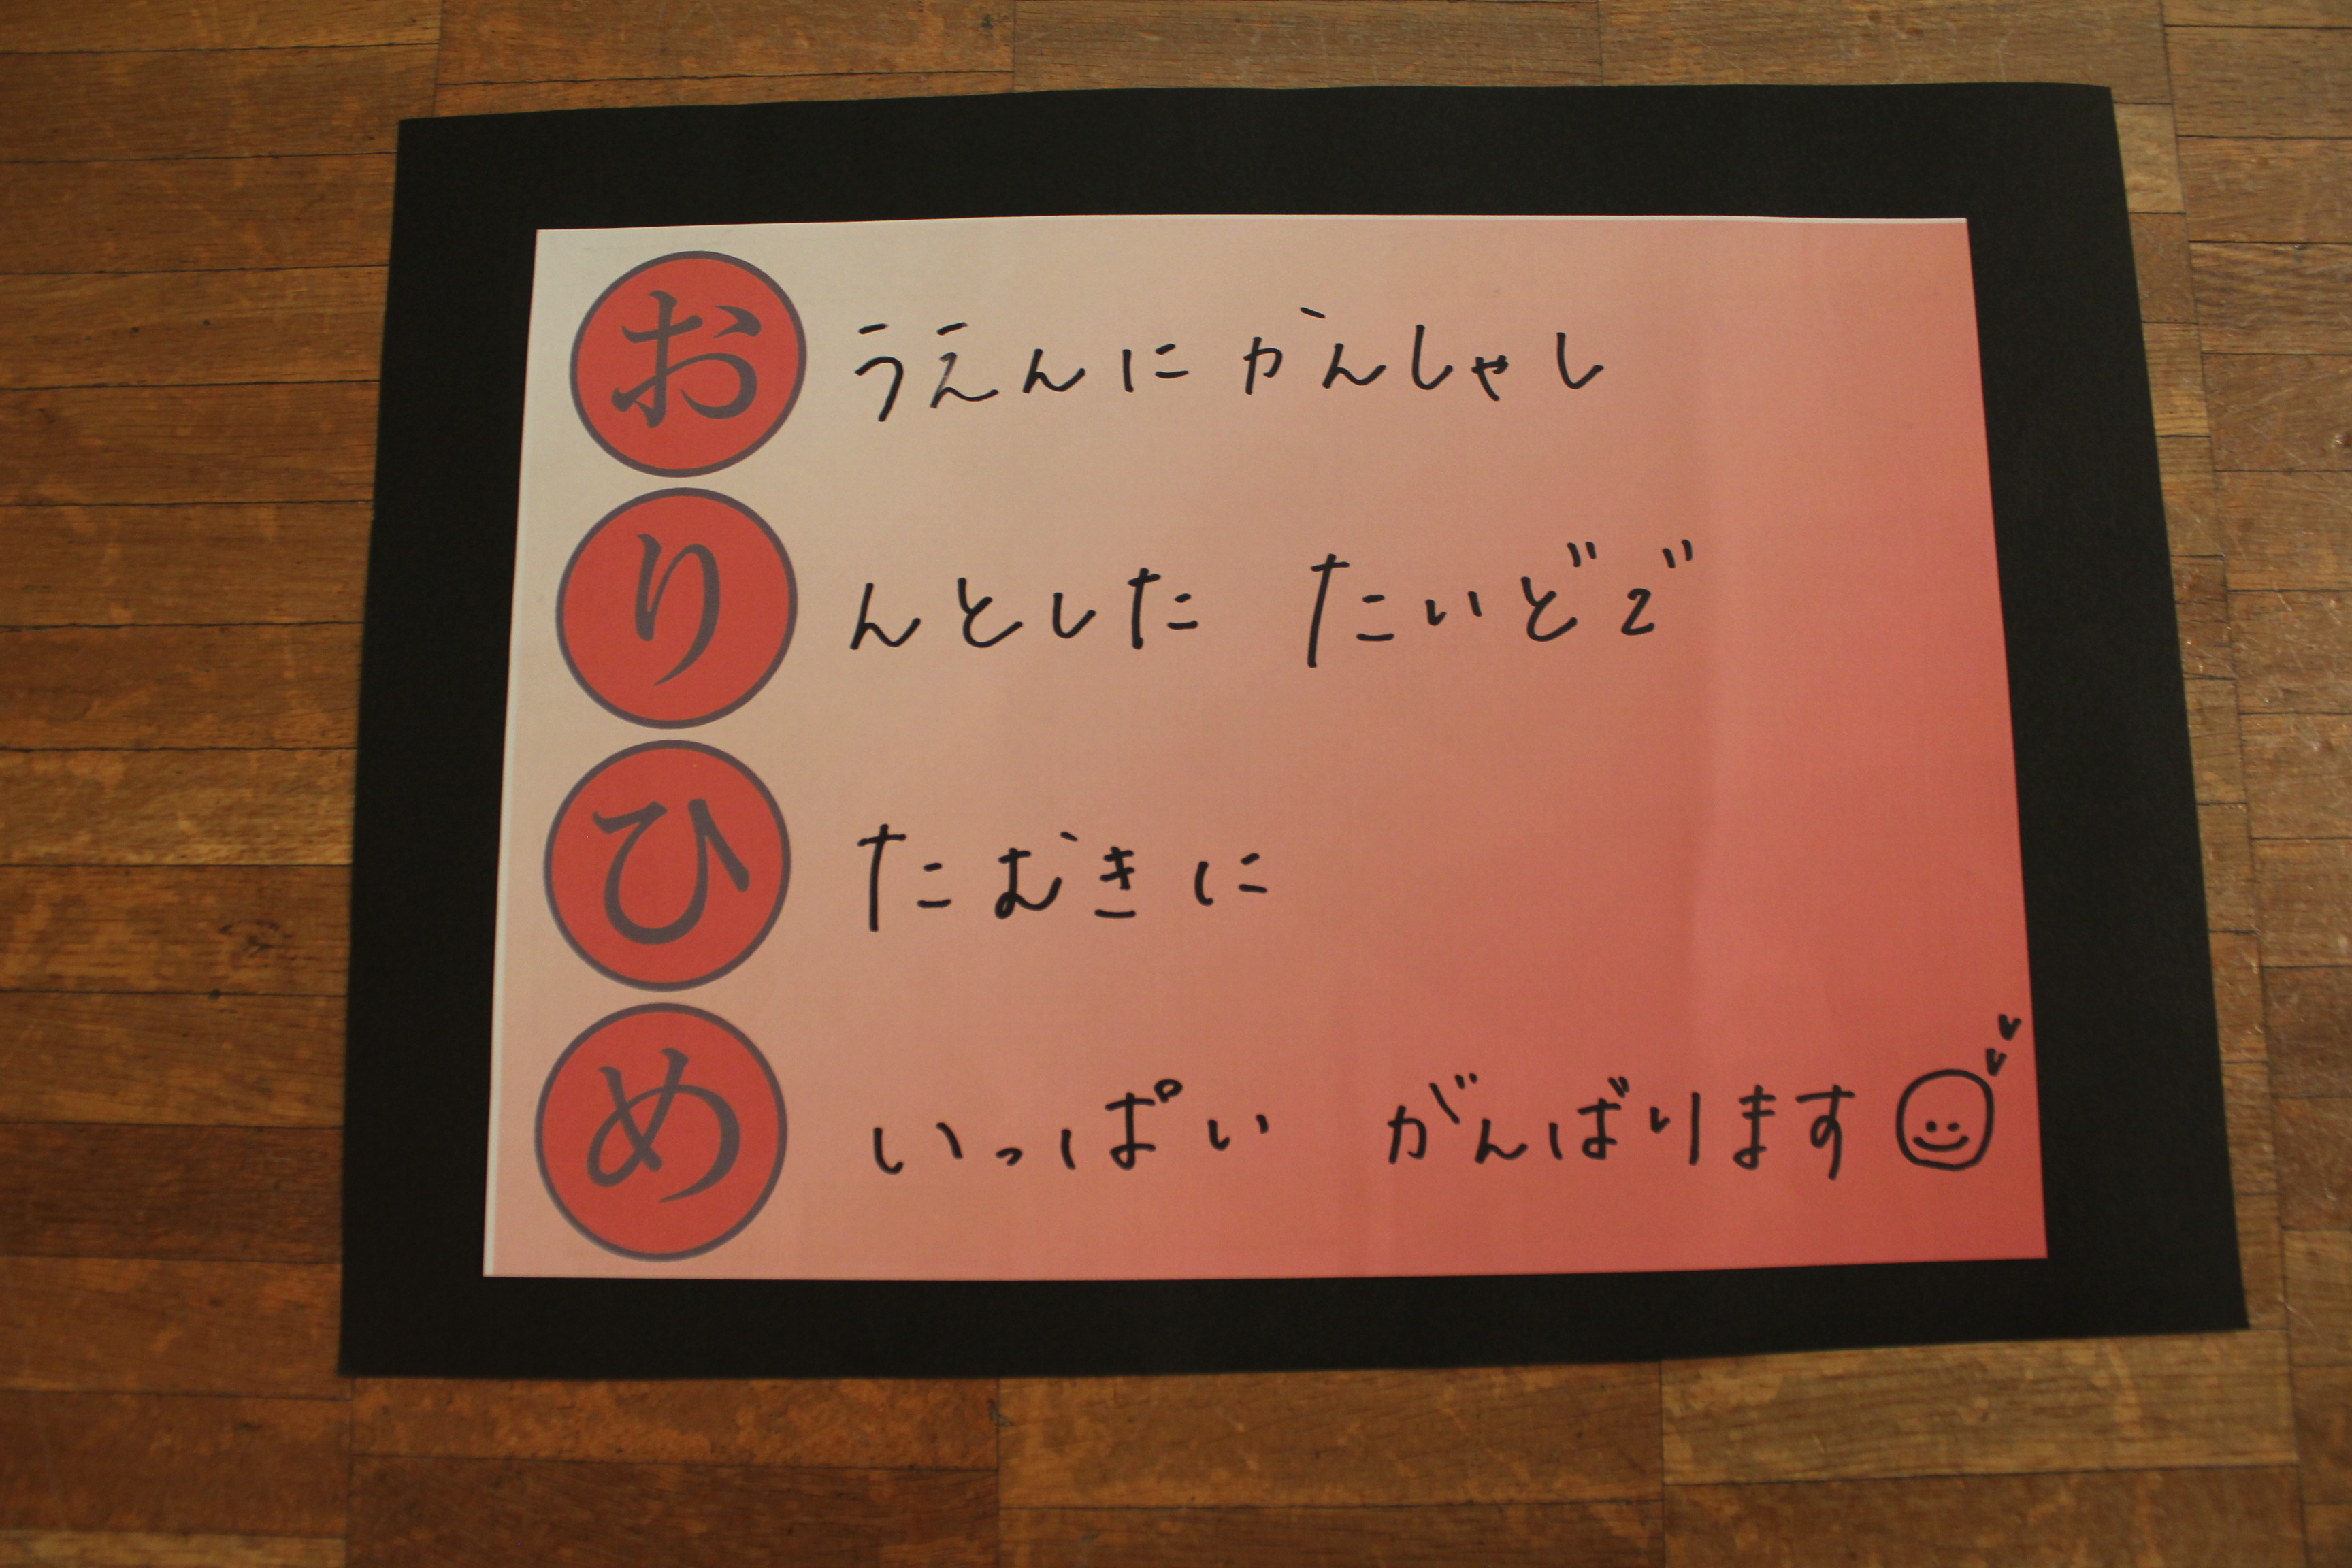 おうえんにかんしゃし
りんとした たいどで
ひたむきに
めいっぱい がんばります